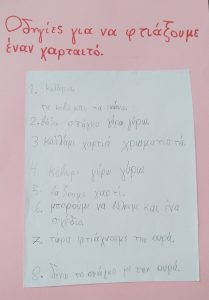 Οδηγίες για να φτιάξουμε
έναν χαρταετό.
1. καλάμια
τα κοβω και τα
2. βάζω σπάγκο γύρω γύρω.
3 κολλάμε χαρτιά χρωματιστά.
4 κόβουμε γύρω γύρω
5. βάζουμε χαρτί.
6. μπορούμε να βάλουμε και ένα
σχέδιο
7. τώρα φτιάχνουμε την ουρά.
8. δένω το σπάγκο με την ουρά.